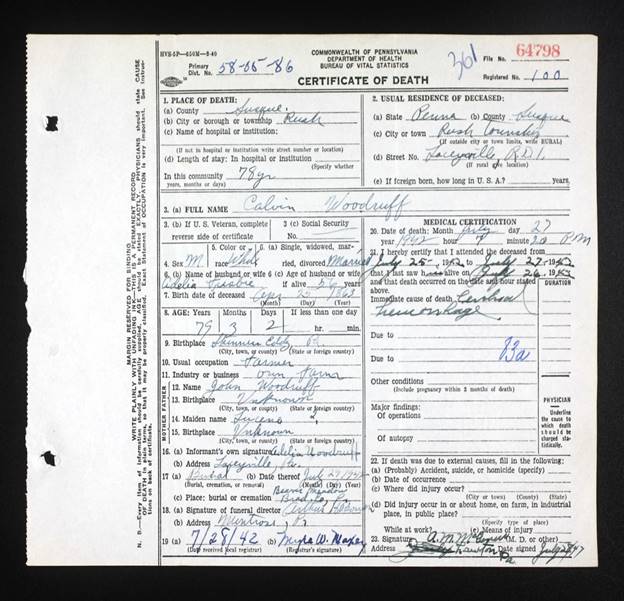 HVS-5P—650M—8-40
COMMONWEALTH OF PENNSYLVANIA
DEPARTMENT OF HEALTH
BUREAU OF VITAL STATISTICS
CERTIFICATE OF DEATH
Primary Dist. No. 58-05-86
361
File No. 64798
Registered No. 100
1. PLACE OF DEATH:
(a) County Susque.
(b) City or borough or township Rush
(c) Name of hospital or institution:
(If not in hospital or institution write street number or location)
(d) Length of stay: In hospital or institution
(Specify whether
In this community 78 yr
years, months or days)
2. USUAL RESIDENCE OF DECEASED:
(a) State Penna (b) County Susque
(c) City or town Rush Township
(If outside city or town limits, write RURAL)
(d) Street No. Laceyville, R.D.1.
(If rural give location)
(e) If foreign born, how long in U. S. A.? years.
3. (a) FULL NAME Calvin Woodruff
3. (b) If U. S. Veteran, complete reverse side of certificate
3 (c) Social Security
4. Sex M.
5. Color or race White
6. (a) Single, widowed, married, divorced Married
6. (b) Name of husband or wife Adelia
6 (c) Age of husband or wife if alive 56 years
7. Birth date of deceased 25 1863
(Month) (Day) (Year)
8. AGE: Years Months Days If less than one day
79 3 2 hr. min.
9. Birthplace Pa.
(City, town, or county) (State or foreign country)
10. Usual occupation Farmer
11. Industry or business Own Farm
FATHER
12. Name John Woodruff
13. Birthplace Unknown
(City, town, or county) (State or foreign country)
MOTHER
14. Maiden name
15. Birthplace Unknown
(City, town, or county) (State or foreign country)
16. (a) Informant's own signature Adelia Woodruff
(b) Address Laceyville, Pa.
17 (a) Burial (b) Date thereof July 29 1942
(Burial, cremation, or removal) (Month) (Day) (Year)
(c) Place: burial or cremation Beaver Meadow
18. (a) Signature of funeral director Arthur
(b) Address Montrose, Pa
19 (a) 7/28/42 (b) Myra W. Maxey
(Date received local registrar) (Registrar's signature)
MEDICAL CERTIFICATION
20. Date of Death: Month July day 27
year 1942 hour minute 30 P.M
21. I hereby certify that I attended the deceased from
July 25- 1942 to July 27 1942
that I last saw h alive on July 26 1942
and that death occurred on the date and hour stated above.
DURATION
Immediate cause of death Cerebral
hemorrhage
Due to
Due to 83a
Other conditions
(Include pregnancy within 3 months of death)
Major findings:
Of operations
Of autopsy
PHYSICIAN
Underline the cause to which death should be charged statistically.
22. If death was due to external causes, fill in the following:
(a) (Probably) Accident, suicide, or homicide (specify)
(b) Date of occurrence
(c) Where did injury occur?
(City or town) (County) (State)
(d) Did injury occur in or about home, on farm, in industrial place, in public place?
(Specify type of place)
While at work? (e) Means of injury
23. Signature (M. D. or other)
Address Lawton Pa Date signed
MARGIN RESERVED FOR BINDING
WRITE PLAINLY WITH UNFADING INK—THIS IS A PERMANENT RECORD